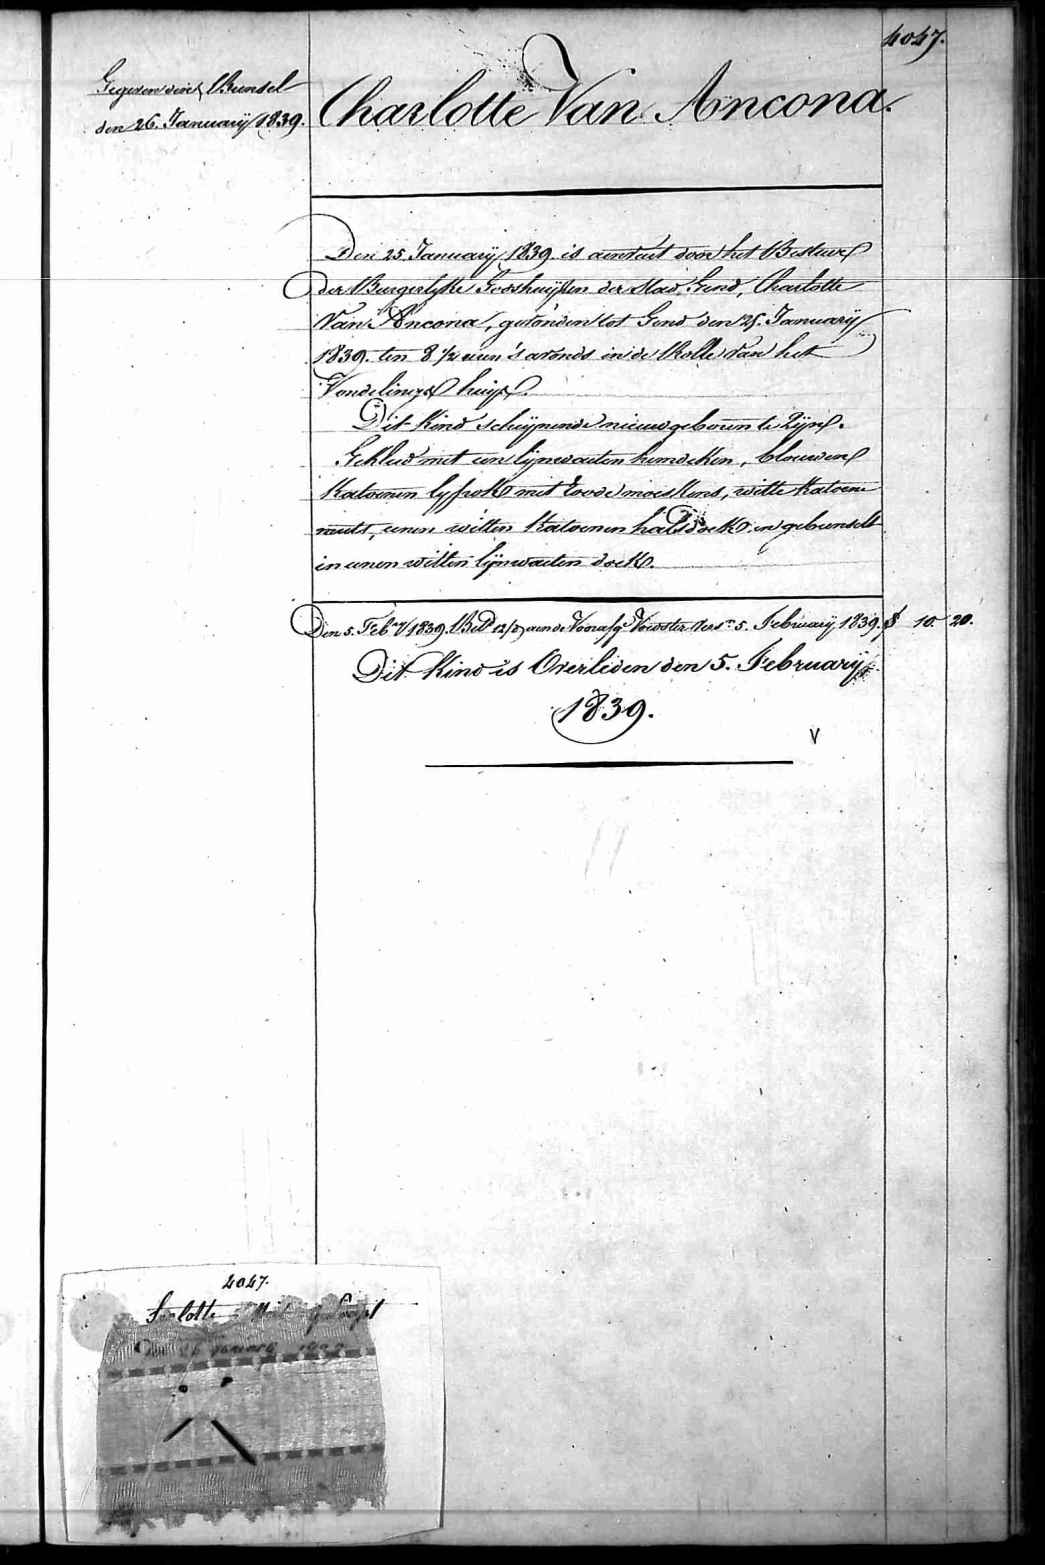 4047.
Gegeven eene Bundel
den 26. Januarij 1839.
Charlotte Van Ancona.
Den 25. Januarij 1839. is aenvaert door het Bestuur
der Burgerlyke Godshuyzen der Stad Gend, Charlotte
Van Ancona, gevonden tot Gend den 25. Januarij
1839. ten 8 1/2 uren 's avonds in de Rolle van het
Vondelingshuys.
Dit Kind schynende nieuwgeboren te Zyn.
Gekleed met een lynwaeten hemdeken, blouwen
Katoenen lyfrok met roode moeskens, witte Katoene
muts, eenen witten Katoenen halsdoek en gebunselt
in eenen witten lynwaeten doek.
Den 5. Feb.ry 1839. Bet.d 12/d aen de Voedster 5. February 1839. 10. 20.
Dit Kind is Overleden den 5. February
1839.
V
4047.
Sarlotte